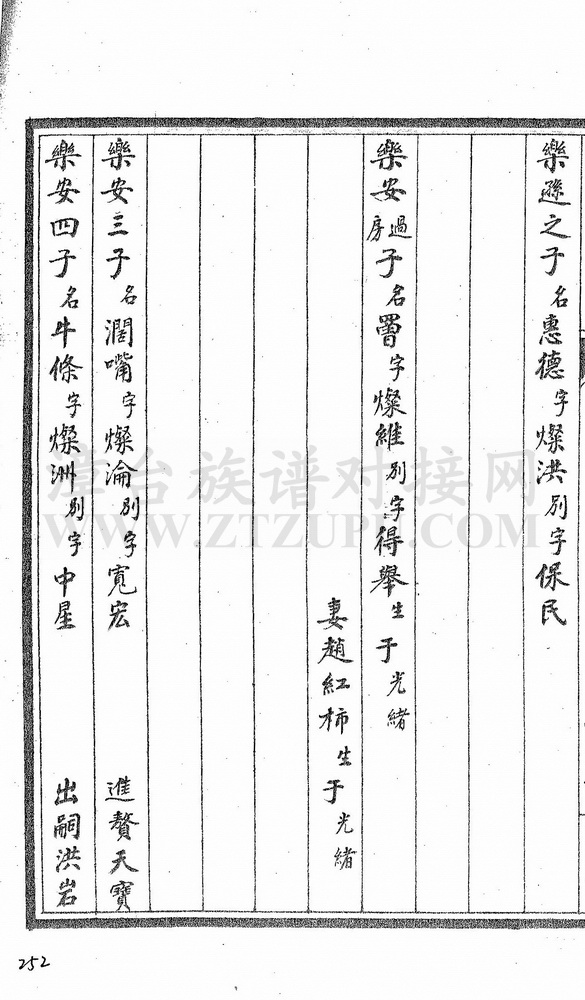 樂遜之子名惠德字燦洪別字保民
樂安過房子名罾字燦維別字得舉生于光緒
妻趙紅柿生于光緒
樂安三子名濶嘴字燦淪別字寬宏 進贅天寶
樂安四子名牛條字燦洲別字中星 出嗣洪岩
252
漳台族谱对接网
WWW.ZTZUPU.COM